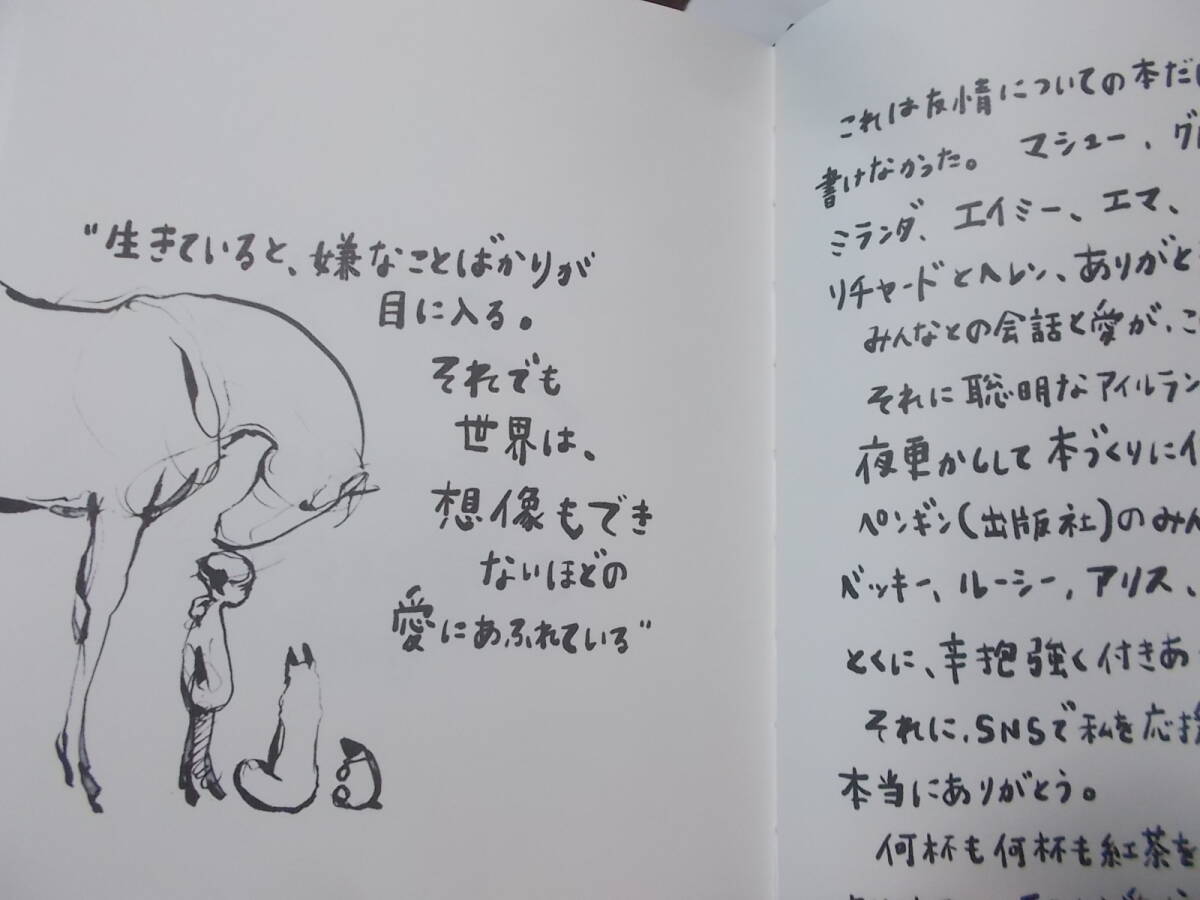 “生きていると、嫌なことばかりが
目に入る。
それでも
世界は、
想像もでき
ないほどの
愛にあふれている”
これは友情についての本だ
書けなかった。 マシュー、グ
ミランダ、エイミー、エマ、
リチャードとヘレン、ありがと
みんなとの会話と愛が、こ
それに聡明なアイルラン
夜更かしして本づくりに
ペンギン(出版社)のみん
ベッキー、ルーシー、アリス、
とくに、辛抱強く付きあ
それに、SNSで私を応援
本当にありがとう。
何杯も何杯も紅茶を